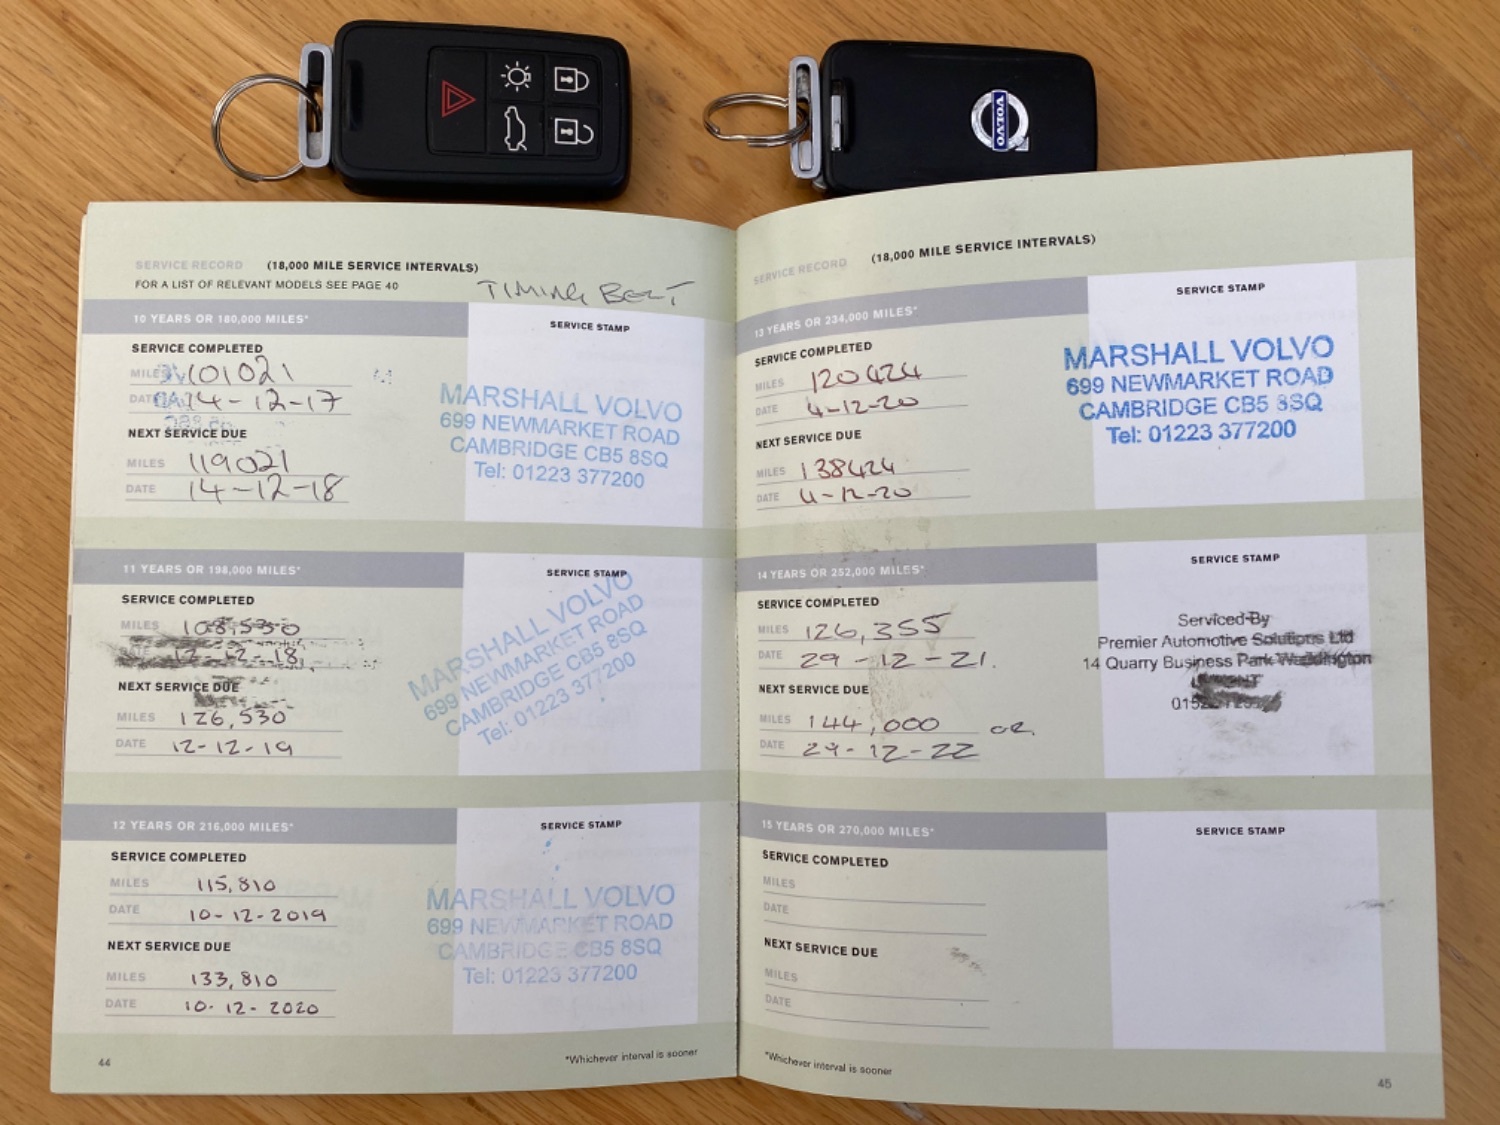 VOLVO
SERVICE RECORD (18,000 MILE SERVICE INTERVALS)
FOR A LIST OF RELEVANT MODELS SEE PAGE 40
TIMING BELT
10 YEARS OR 180,000 MILES*
SERVICE STAMP
SERVICE COMPLETED
MILES 101021
DATE 14-12-17
NEXT SERVICE DUE
MILES 119021
DATE 14-12-18
MARSHALL VOLVO
699 NEWMARKET ROAD
CAMBRIDGE CB5 8SQ
Tel: 01223 377200
11 YEARS OR 198,000 MILES*
SERVICE STAMP
SERVICE COMPLETED
MILES 108,530
DATE 12-12-18
NEXT SERVICE DUE
MILES 126,530
DATE 12-12-19
MARSHALL VOLVO
699 NEWMARKET ROAD
CAMBRIDGE CB5 8SQ
Tel: 01223 377200
12 YEARS OR 216,000 MILES*
SERVICE STAMP
SERVICE COMPLETED
MILES 115,810
DATE 10-12-2019
NEXT SERVICE DUE
MILES 133,810
DATE 10-12-2020
MARSHALL VOLVO
699 NEWMARKET ROAD
CAMBRIDGE CB5 8SQ
Tel: 01223 377200
44
*Whichever interval is sooner
SERVICE RECORD (18,000 MILE SERVICE INTERVALS)
13 YEARS OR 234,000 MILES*
SERVICE STAMP
SERVICE COMPLETED
MILES 120424
DATE 4-12-20
NEXT SERVICE DUE
MILES 138424
DATE 4-12-20
MARSHALL VOLVO
699 NEWMARKET ROAD
CAMBRIDGE CB5 8SQ
Tel: 01223 377200
14 YEARS OR 252,000 MILES*
SERVICE STAMP
SERVICE COMPLETED
MILES 126,355
DATE 29-12-21.
NEXT SERVICE DUE
MILES 144,000 OR.
DATE 29-12-22
Serviced By
Premier Automotive Solutions Ltd
14 Quarry Business Park Waddington
15 YEARS OR 270,000 MILES*
SERVICE STAMP
SERVICE COMPLETED
MILES
DATE
NEXT SERVICE DUE
MILES
DATE
*Whichever interval is sooner
45